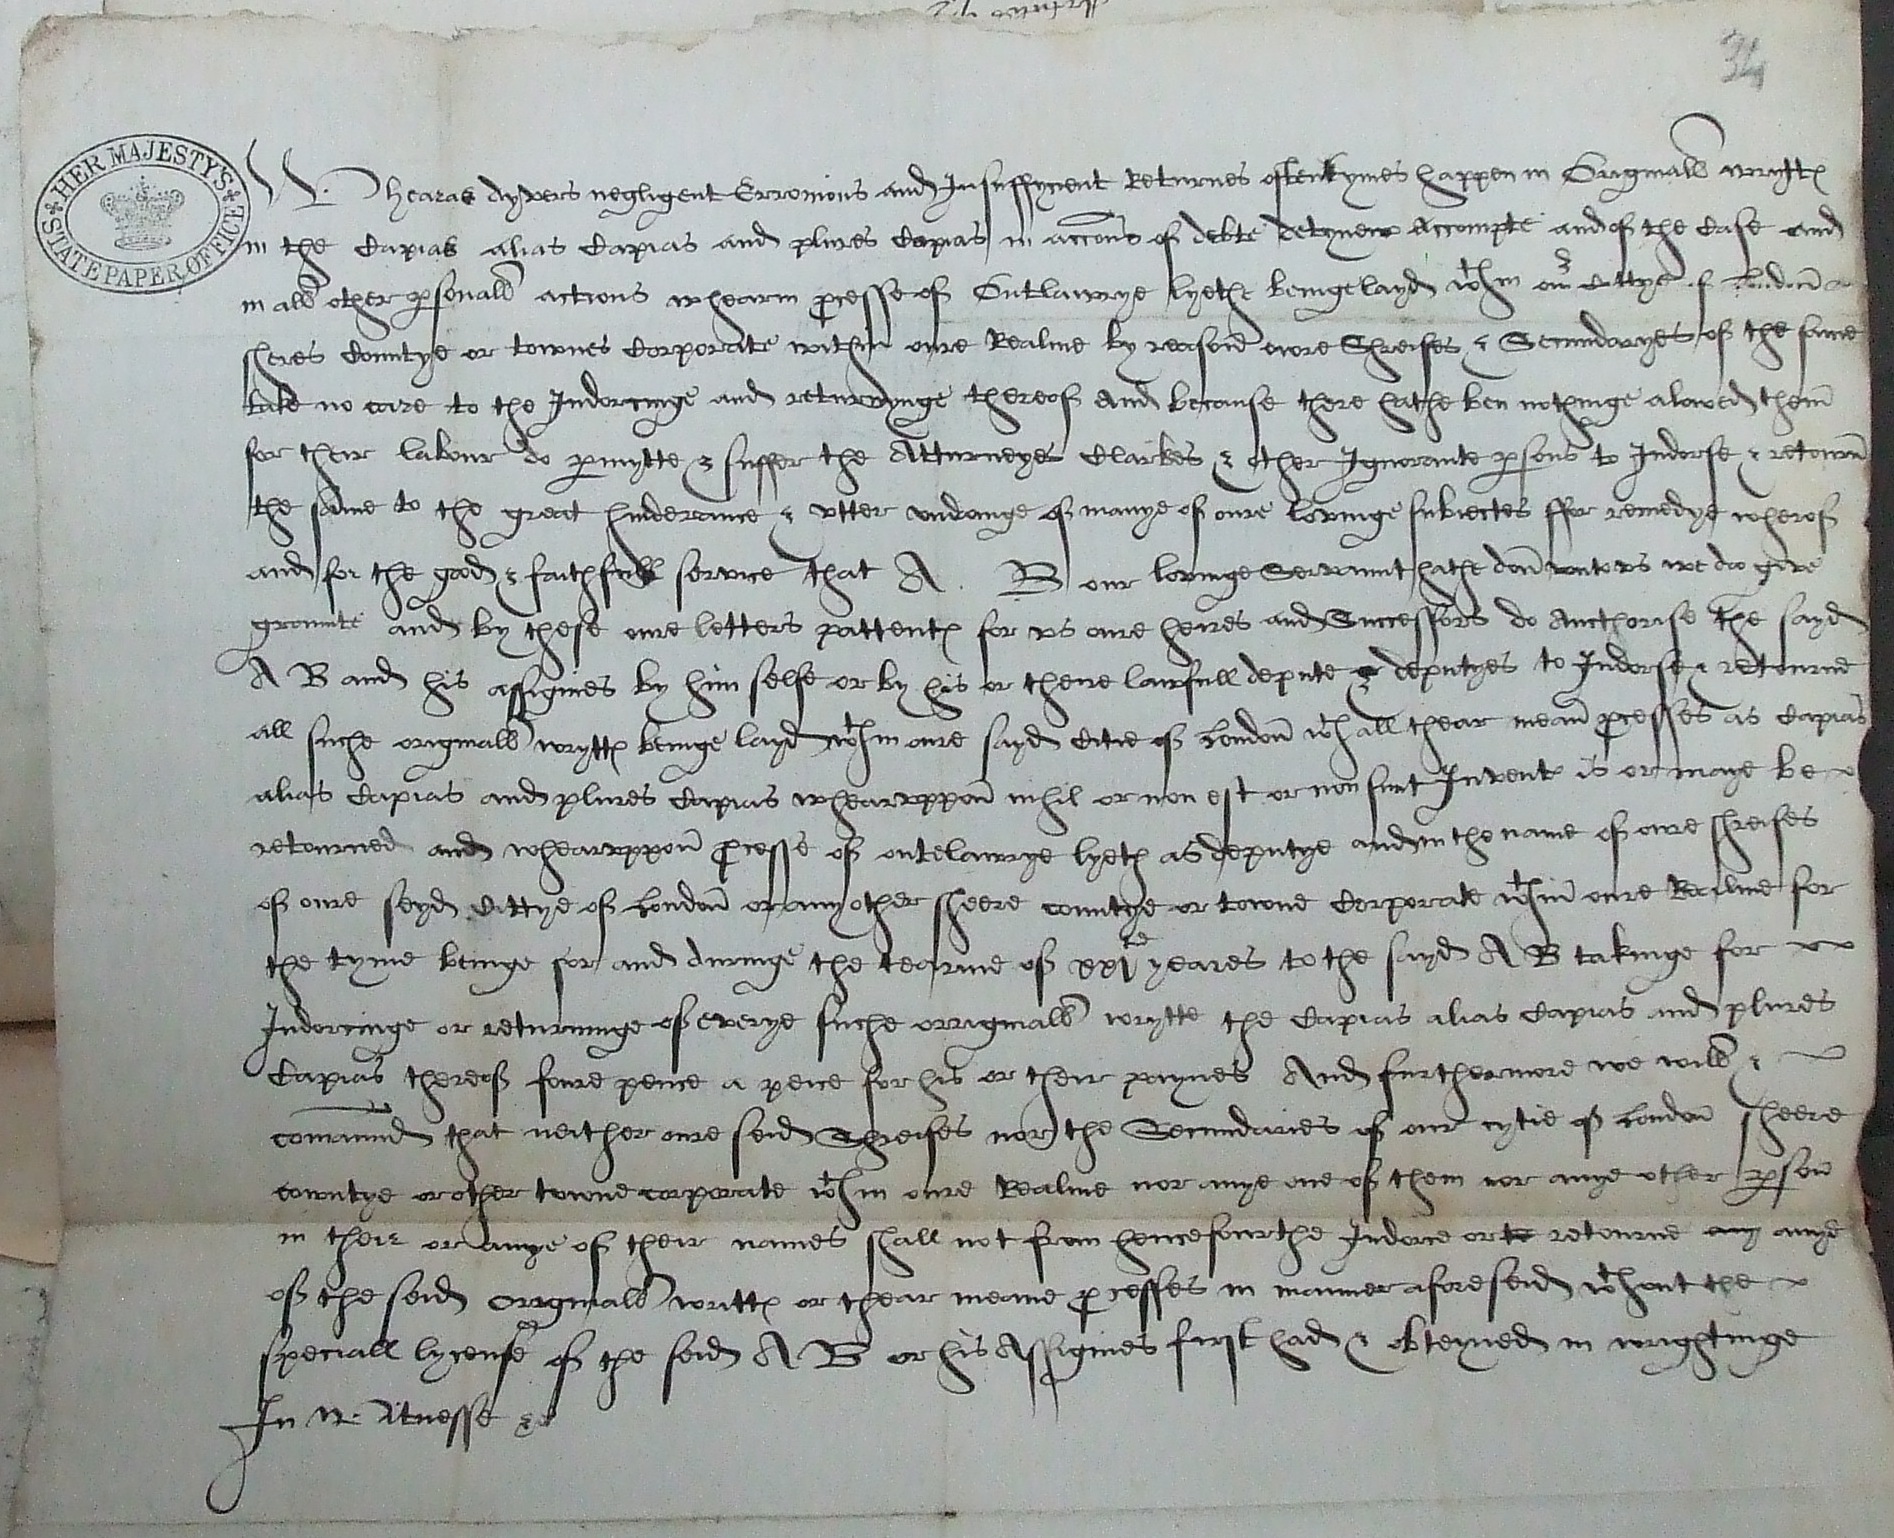 34
HER MAJESTY'S STATE PAPER OFFICE
Whearas dyvers negligent Erronious and Insuffycient Returnes oftentymes happen in Originall wrytts
in the Capias alias Capias and plures Capias in accons of debte detynew Accompte and of the Case and
in all other psonall actions whearin pcesse of Outlawrye lyethe beinge layd wthin our Cittye of London
sheres Countye or townes Corporate within oure Realme by reason oure Shreifes & Secundaryes of the same
take no care to the Indorcinge and returnynge thereof And because there hathe ben nothinge alowed them
for their labour do pmytte & suffer the Atturneyes Clarkes & other Ignorante psons to Indorse & retourn
the same to the great hinderance & utter undoinge of manye of oure lovinge subiectes ffor remedye wherof
and for the good & faithfull service that A. B our lovinge Servaunt hathe don unto us we do give
graunte and by these oure letters pattents for us oure heires and Successors do Aucthorise the sayd
A B and his assignes by him selfe or by his or theire lawfull depute & deputyes to Indorse & retourne
all suche originall wrytts beinge layd wthin oure sayd Citie of London wth all thear mean pcesses as Capias
alias Capias and plures Capias whearuppon nihil or non est or non sunt Invent is or maye be
retourned and whearuppon pcesse of outelawrye lyeth as deputye and in the name of oure shreifes
of oure seyd Cittye of London or any other sheere countye or towne Corporate wthin oure Realme for
the tyme beinge for and duringe the tearme of xxi yeares to the sayd A B takinge for
Indorcinge or returninge of everye suche orriginall wrytte the Capias alias Capias and plures
Capias thereof foure pence a peice for his or their paynes And furthermore we will &
comaund that neither oure seid Shreifes nor the Secundaries of our cytie of London sheere
countye or other towne corporate wthin oure Realme nor anye one of them nor anye other pson
in their or anye of their names shall not from hencefourthe Indorce or to retourne any anye
of the seid originall writts or thear meane pcesses in manner aforeseid wthout the
speciall lycense of the seid A B or his Assignes first had & obteyned in wrightinge
In Witnesse &c